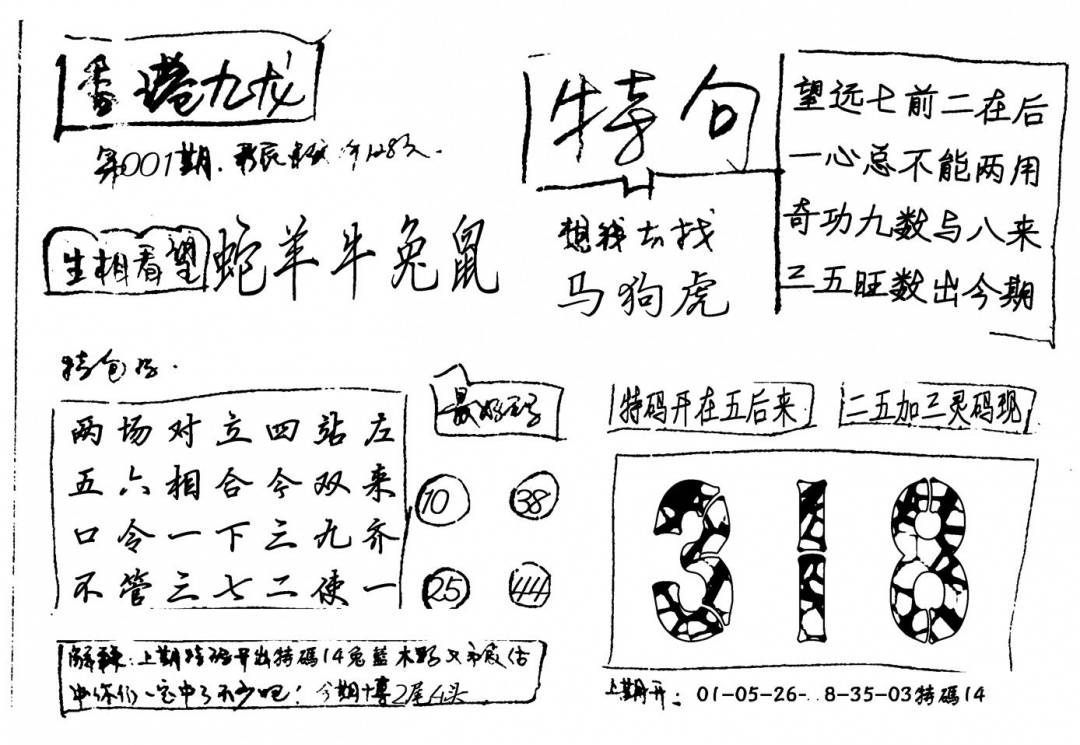 香港九龙
第001期.
生相看望
蛇羊牛兔鼠
特句
想我去找
马狗虎
望远七前二在后
一心总不能两用
奇功九数与八来
三五旺数出今期
两场对立四站左
五六相合今双来
口令一下三九齐
不管三七二使一
10 38
25 44
特码开在五后来
二五加三灵码现
318
上期特码开出特碼14兔藍木野
中你们一定中了不少吧！今期十尊2尾4头
上期开: 01-05-26-..8-35-03特碼14